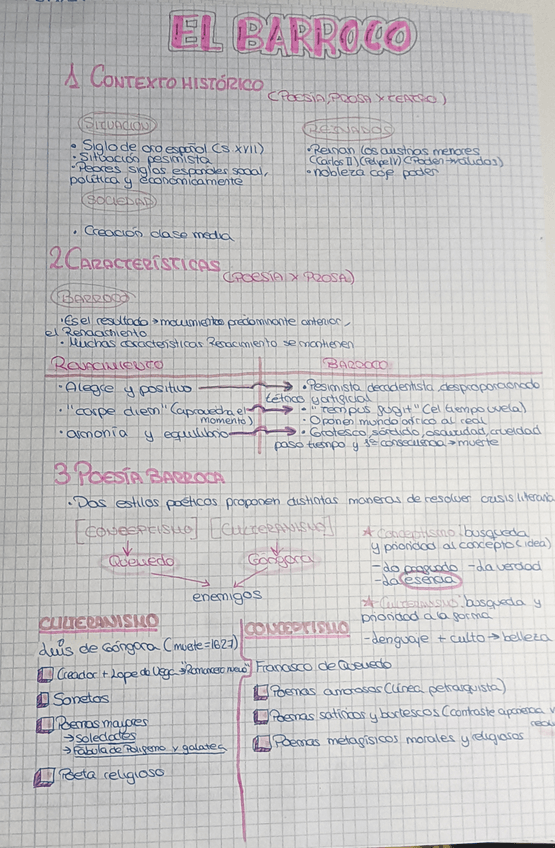 EL BARROCO
1 CONTEXTO HISTÓRICO
(POESÍA, PROSA Y TEATRO)
SITUACIÓN
• Siglo de oro español (s XVII)
• Situación pesimista
• Peores siglos españoles social,
política y económicamente
REINADOS
• Reinan los austrias menores
(Carlos II) (Felipe IV) (Poder → validos)
• nobleza coje poder
SOCIEDAD
• Creación clase media
2 CARACTERÍSTICAS
(POESÍA Y PROSA)
BARROCO
• Es el resultado → movimiento predominante anterior,
el Renacimiento
• Muchas características Renacimiento se mantienen
RENACIMIENTO BARROCO
• Alegre y positivo → • Pesimista decadentista, desproporcionado
tétrico y artificial
• "carpe diem" (aprovecha el → • "Tempus fugit" (el tiempo vuela)
momento) • Oponen mundo onírico al real
• armonía y equilibrio → • Grotesco, sórdido, oscuridad, crueldad
paso tiempo y 1ª consecuencia → muerte
3 POESÍA BARROCA
• Dos estilos poéticos proponen distintas maneras de resolver crisis literaria
[CONCEPTISMO] [CULTERANISMO]
Quevedo Góngora
enemigos
* Conceptismo: busqueda
y prioridad al concepto (idea)
- lo profundo - la verdad
- la esencia
* Culteranismo: busqueda y
prioridad a la forma
- lenguaje + culto → belleza
CULTERANISMO
Luis de Góngora (muerte=1627)
Creador + Lope de Vega → "Romancero nuevo"
Sonetos
Poemas mayores
→ Soledades
→ Fabula de Polifemo y galatea
Poeta religioso
CONCEPTISMO
Francisco de Quevedo
Poemas amorosos (línea petrarquista)
Poemas satíricos y burlescos (contraste apariencia y
Poemas metafísicos morales y religiosos